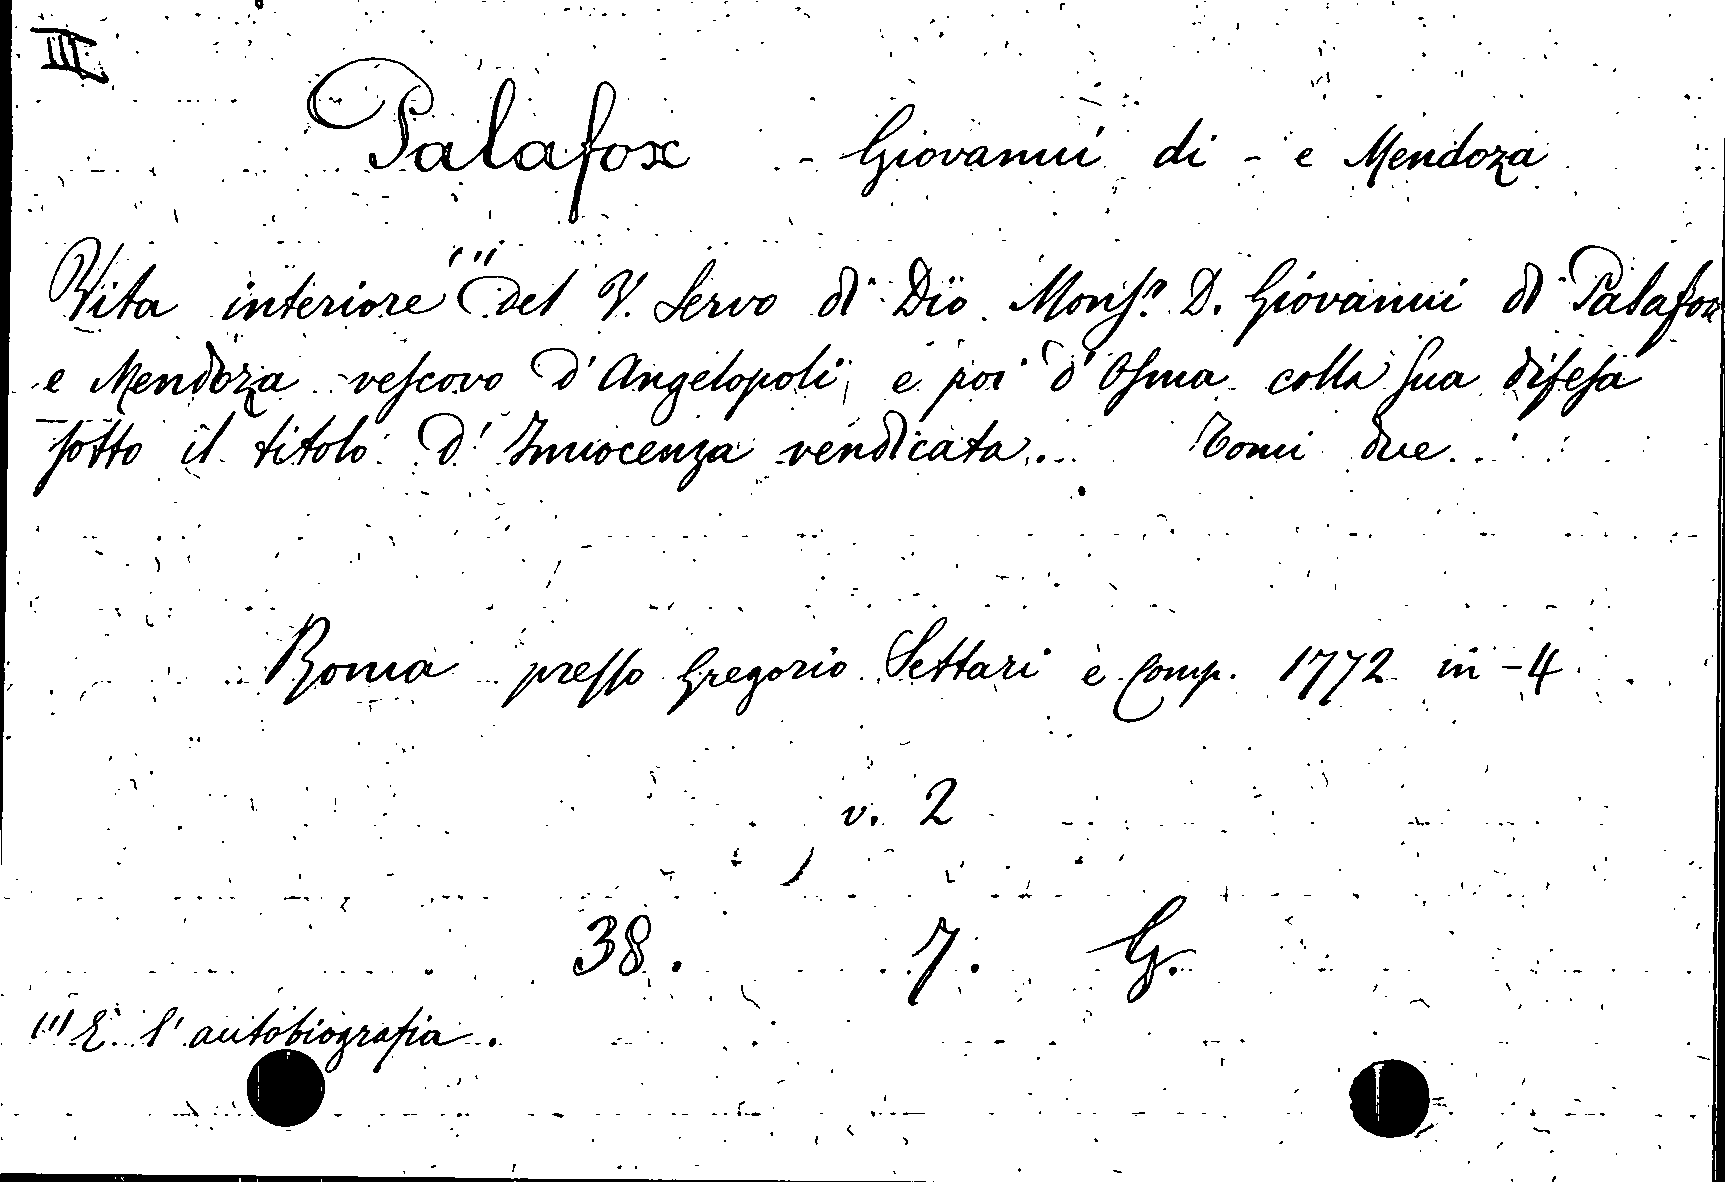 III
Palafox - Giovanni di - e Mendoza
Vita interiore (1) del V. Servo di Dio Monsr. D. Giovanni di Palafox
e Mendoza vescovo d'Angelopoli, e poi d'Osma colla sua difesa
sotto il titolo d'Innocenza vendicata... Tomi due.
Roma presso Gregorio Settari e Comp. 1772 in-4
v. 2
38. 7. G.
(1) E' l'autobiografia.